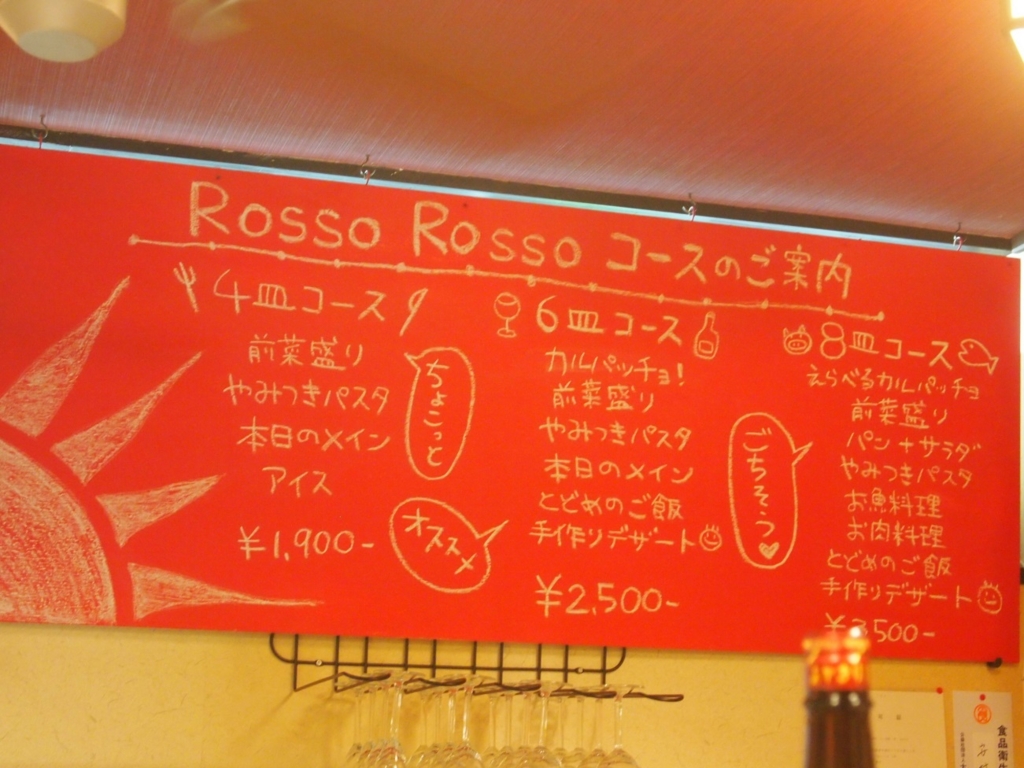 Rosso Rosso コースのご案内
4皿コース
前菜盛り
やみつきパスタ
本日のメイン
アイス
¥1,900-
ちょこっと
オススメ
6皿コース
カルパッチョ!
前菜盛り
やみつきパスタ
本日のメイン
とどめのご飯
手作りデザート
¥2,500-
ごちそう
8皿コース
えらべるカルパッチョ
前菜盛り
パン+サラダ
やみつきパスタ
お魚料理
お肉料理
とどめのご飯
手作りデザート
¥3,500-
食品衛生